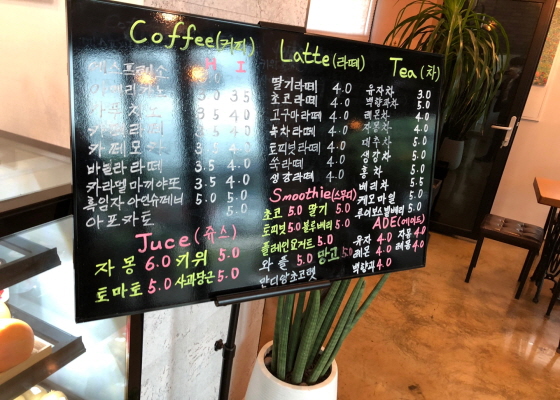 Coffee(커피)
H I
에스프레소 3.0
아메리카노 3.0 3.5
카푸치노 3.5 4.0
카페라떼 3.5 4.0
카페모카 3.5 4.0
바닐라라떼 3.5 4.0
카라멜마끼야또 3.5 4.0
흑임자아인슈페너 5.0 5.0
아포카토 5.0
Juce(쥬스)
자몽 6.0 키위 5.0
토마토 5.0 사과당근 5.0
Latte(라떼)
딸기라떼 4.0
초코라떼 4.0
고구마라떼 4.0
녹차라떼 4.0
토피넛라떼 4.0
쑥라떼 4.0
생강라떼 4.0
Smoothie(스무디)
초코 5.0 딸기 5.0
토피넛 5.0 블루베리 5.0
플레인요거트 5.0
와플 5.0 망고 5.0
민디망초코렛
Tea(차)
유자차 3.0
백향과차 5.0
레몬차 4.0
자몽차 4.0
대추차 5.0
생강차 5.0
홍차 5.0
베리차 5.5
케모마일 5.0
루이보스빌베리 5.0
ADE(에이드)
유자 4.0 자몽 4.0
레몬 4.0
백향과 4.0